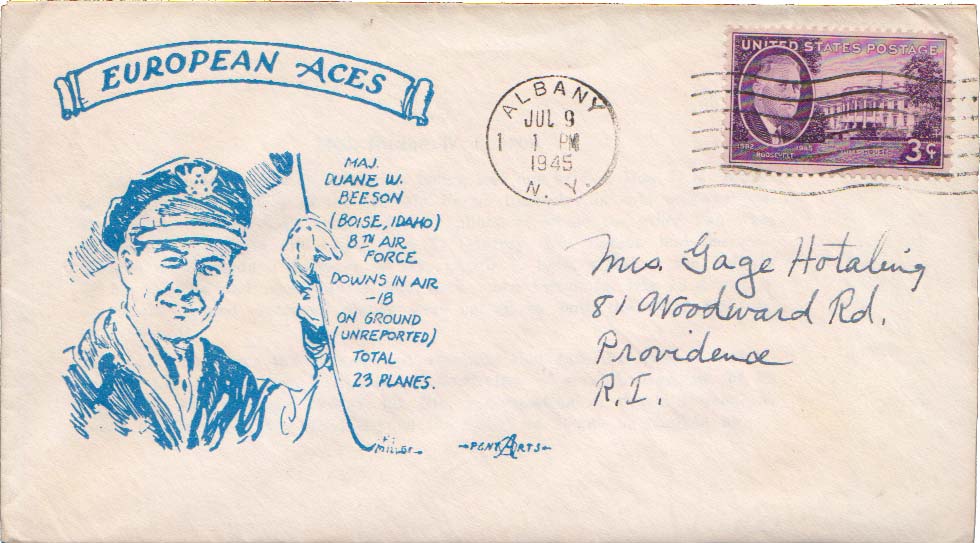 EUROPEAN ACES
MAJ.
DUANE W.
BEESON
(BOISE, IDAHO)
8TH AIR
FORCE
DOWNS IN AIR
-18
ON GROUND
(UNREPORTED)
TOTAL
23 PLANES.
MILLER
PENT ARTS
ALBANY
JUL 9
1 PM
1945
N. Y.
UNITED STATES POSTAGE
1882 1945
ROOSEVELT
3¢
Mrs. Gage Hotaling
81 Woodward Rd.
Providence
R.I.